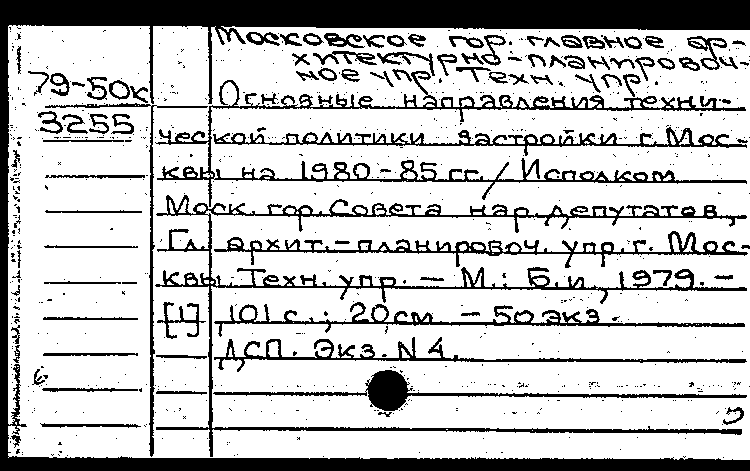 Московское гор. главное ар-
хитектурно-планировоч-
ное упр. Техн. упр.
79-50к
3255
Основные направления техни-
ческой политики застройки г. Мос-
квы на 1980-85 гг. / Исполком
Моск. гор. Совета нар. депутатов,
Гл. архит.-планировоч. упр. г. Мос-
квы. Техн. упр. — М.: Б.и, 1979. —
[1], 101 с.; 20 см — 50 экз.
ДСП. Экз. N 4.
6